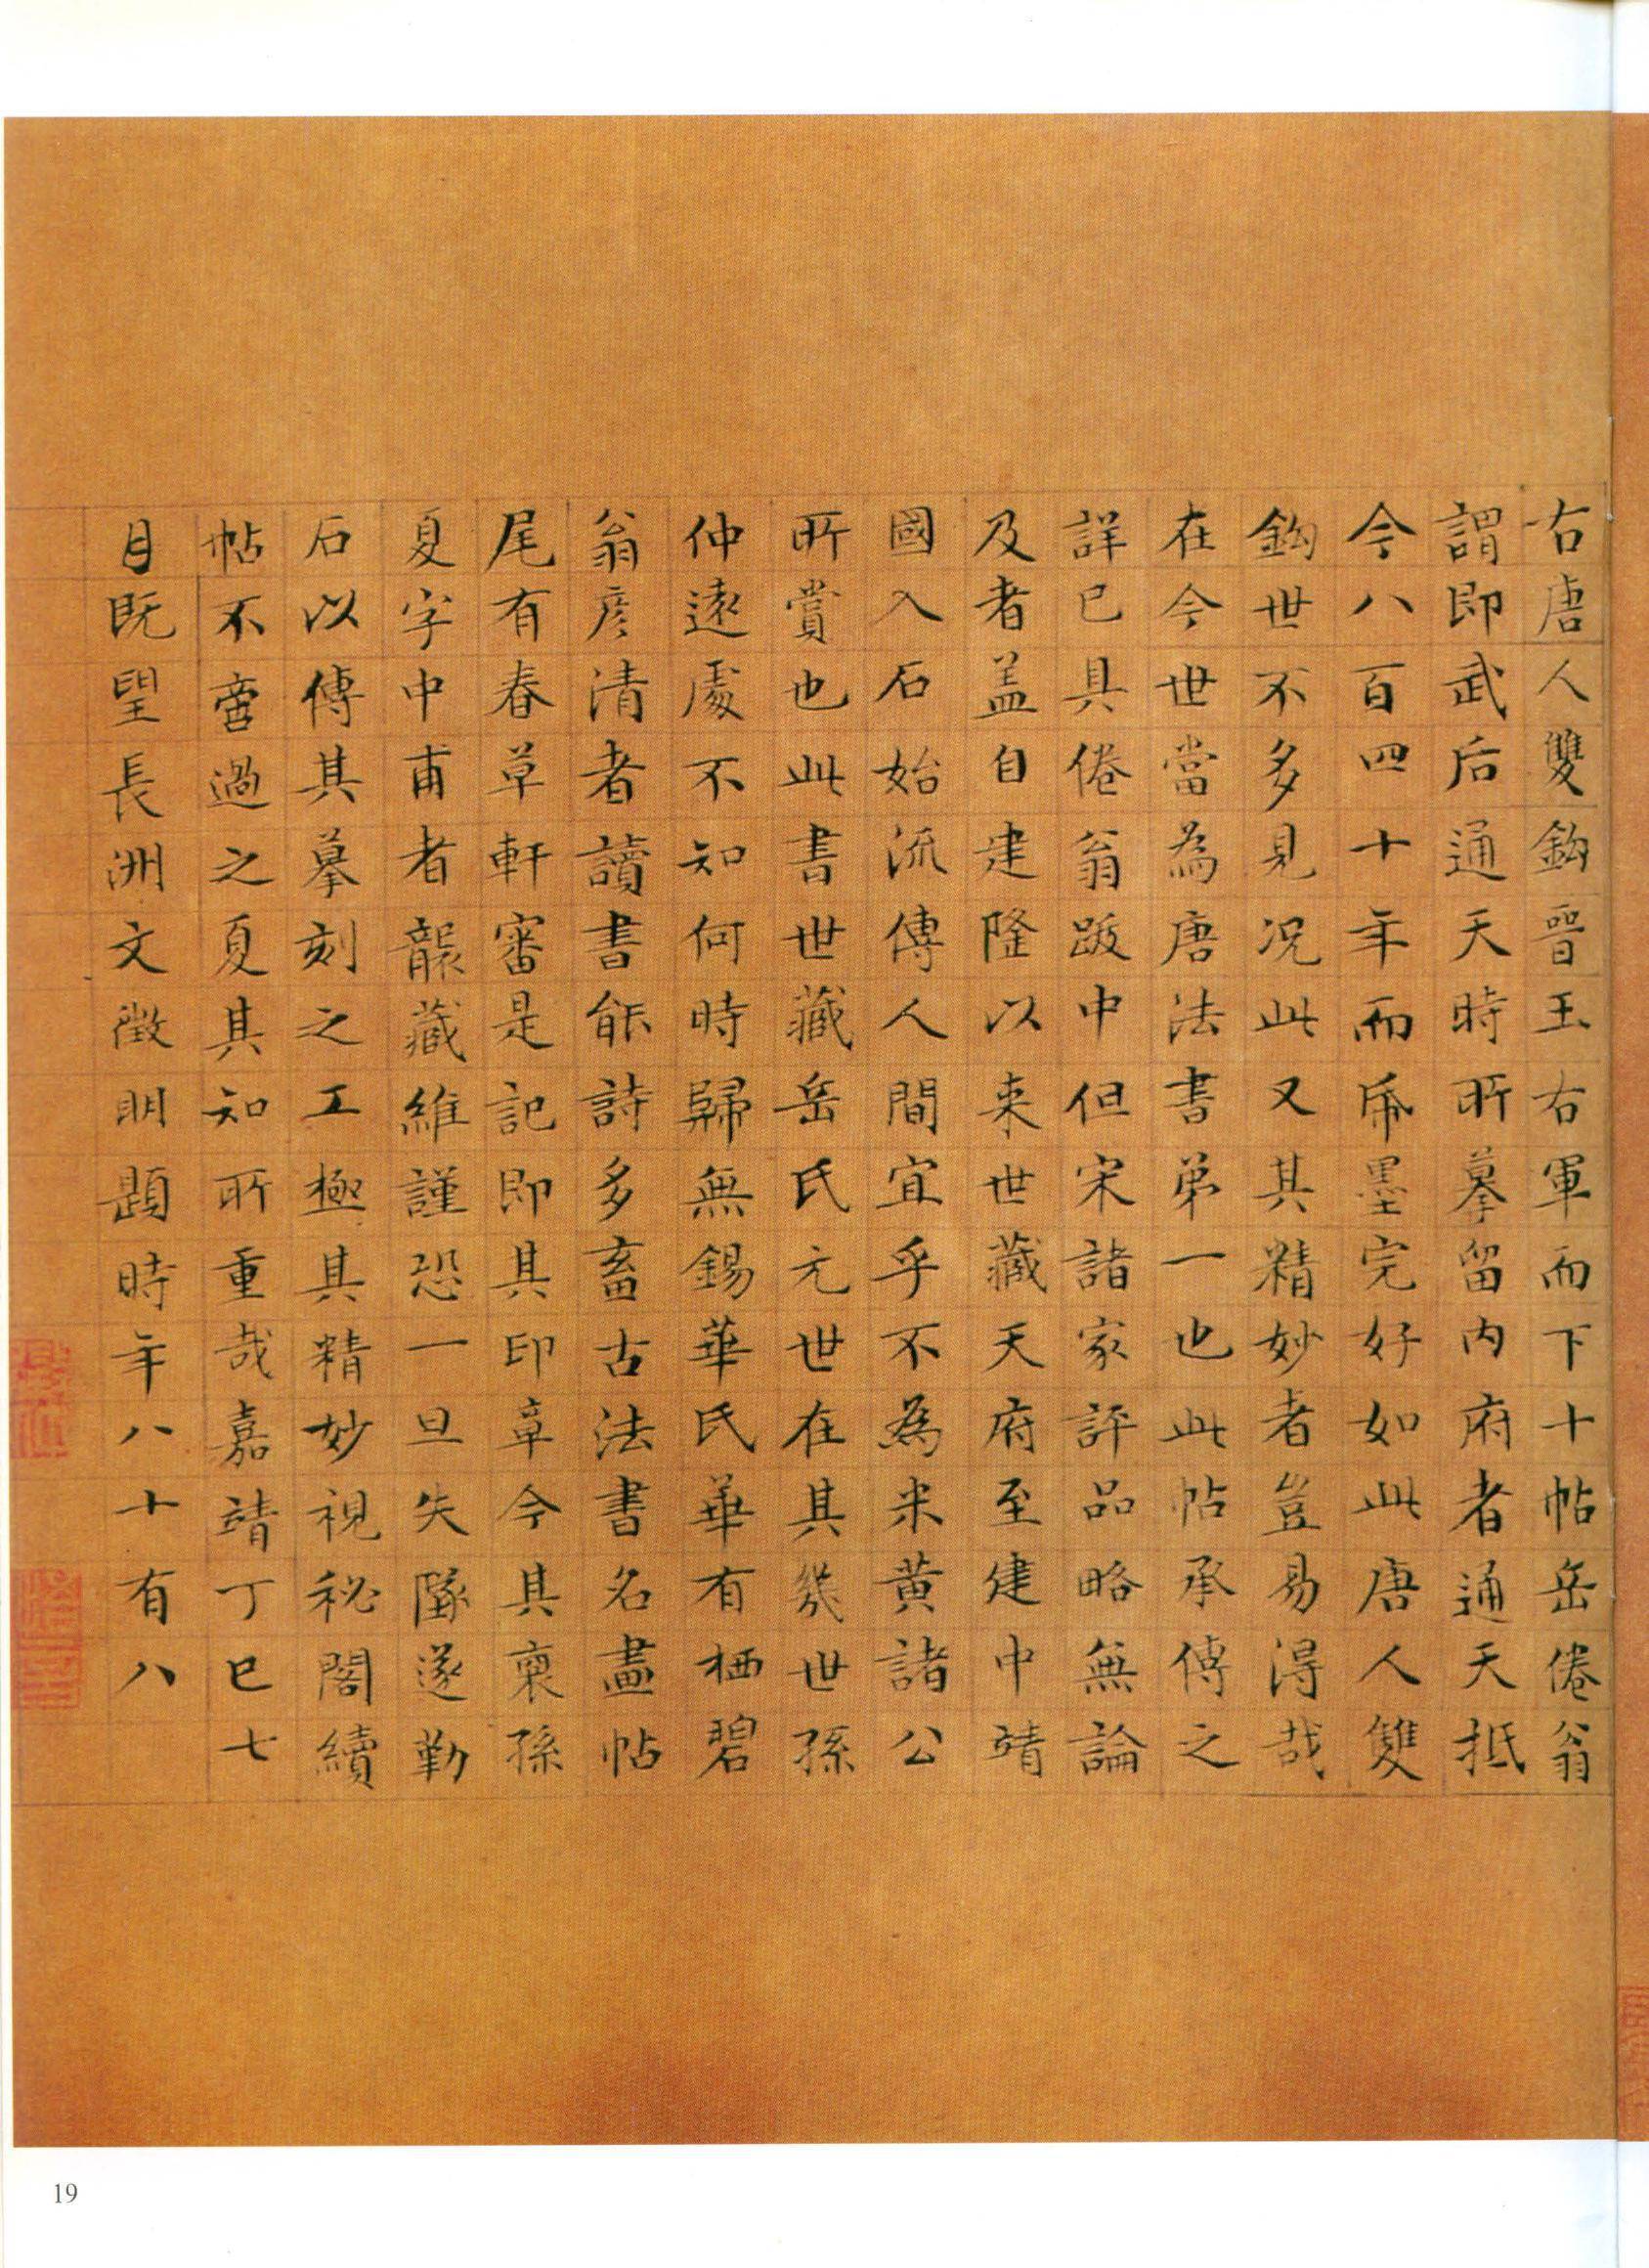 右唐人雙鉤晉王右軍而下十帖岳倦翁
謂即武后通天時所摹留內府者通天抵
今八百四十年而紙墨完好如此唐人雙
鉤世不多見況此又其精妙者豈易得哉
在今世當為唐法書第一也此帖承傳之
詳已具倦翁跋中但宋諸家評品略無論
及者盖自建隆以来世藏天府至建中靖
國入石始流傳人間宜乎不為米黃諸公
所賞也此書世藏岳氏元世在其幾世孫
仲遠處不知何時歸無錫華氏華有栖碧
翁彦清者讀書能詩多畜古法書名畫帖
尾有春草軒審是記即其印章今其裔孫
夏字中甫者襲藏維謹恐一旦失墜遂勒
石以傳其摹刻之工極其精妙視秘閣續
帖不啻過之夏其知所重哉嘉靖丁巳七
月既望長洲文徵明題時年八十有八
19